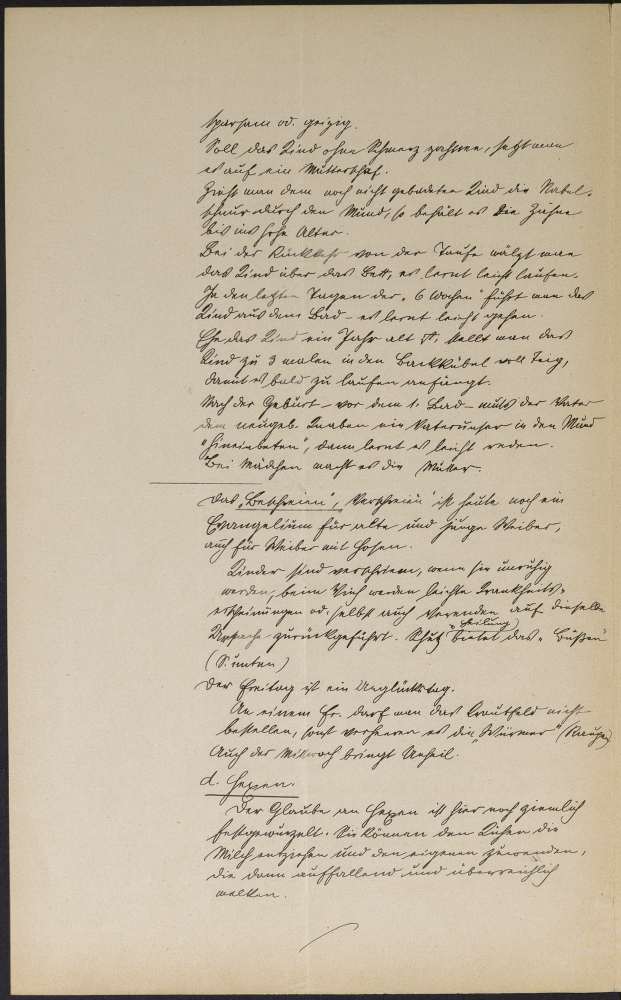 sparsam od. geizig.
Soll das Kind ohne Schmerz zahnen, setzt man
es auf ein Mutterschaf.
Zieht man dem noch nicht gebadeten Kind die Nabel-
schnur durch den Mund, so behält es die Zähne
bis ins hohe Alter.
Bei der Rückkehr von der Taufe wälzt man
das Kind über das Bett, es lernt leicht laufen.
In den letzten Tagen der „6 Wochen" führt man das
Kind aus dem Bad – es lernt leicht gehen.
Ehe das Kind ein Jahr alt ist, stellt man das
Kind zu 3 malen in den Backkübel voll Teig,
damit es bald zu laufen anfängt.
Nach der Geburt – vor dem 1. Bad – muß der Vater
dem neugeb. Knaben ein Vaterunser in den Mund
"hineinbeten", dann lernt es leicht reden.
Bei Mädchen macht es die Mutter.
Das „Beschreien", Verschreien ist heute noch ein
Evangelium für alte und junge Weiber,
auch für Weiber mit Hosen.
Kinder sind verschrieen, wenn sie unruhig
werden, beim Vieh werden leichte Krankheits-
erscheinungen od. selbst auch Verenden auf dieselbe
Ursache zurückgeführt. Schutz u. Heilung) bietet das „Büßen"
(S. unten)
Der Freitag ist ein Unglückstag.
An einem Fr. darf man das Krautfeld nicht
bestellen, sonst verheeren es die „Würmer" (Raupen)
Auch der Mittwoch bringt Unheil.
d. Hexen.
Der Glaube an Hexen ist hier noch ziemlich
festgewurzelt. Sie können den Kühen die
Milch entziehen und den eigenen zuwenden,
die dann auffallend und überreichlich
melken.